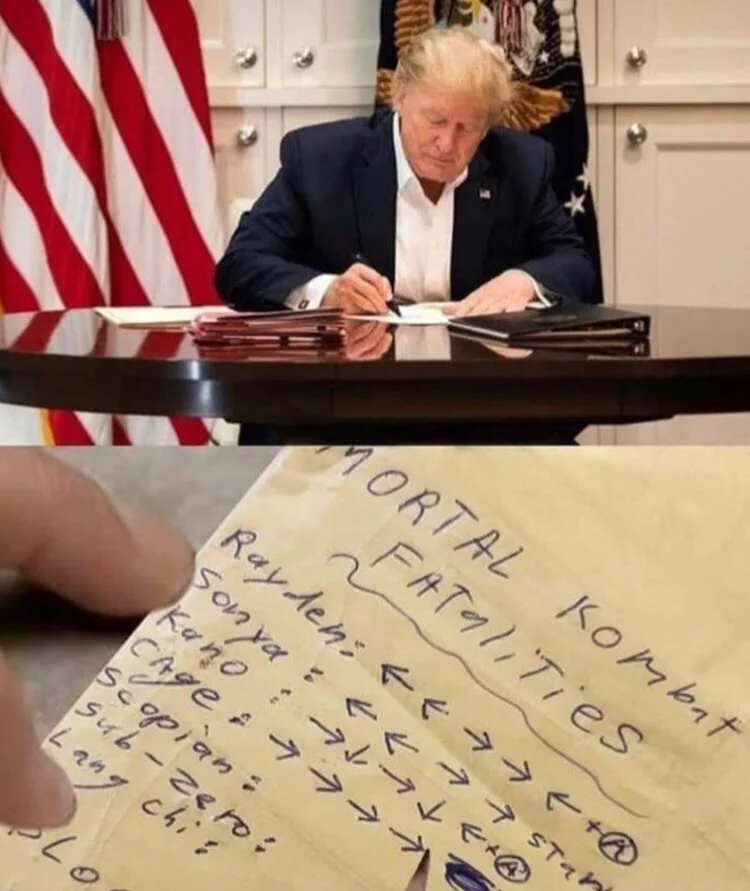 MORTAL KOMbAt
FATALiTieS
Rayden: ← ← → → ← + Ⓐ
Sonya : ← ← → →
Kano : → ↓ → ↓ ← + Ⓐ
CAge : → → → →
Scopian:
Sub-Zero:
Lang Chi: